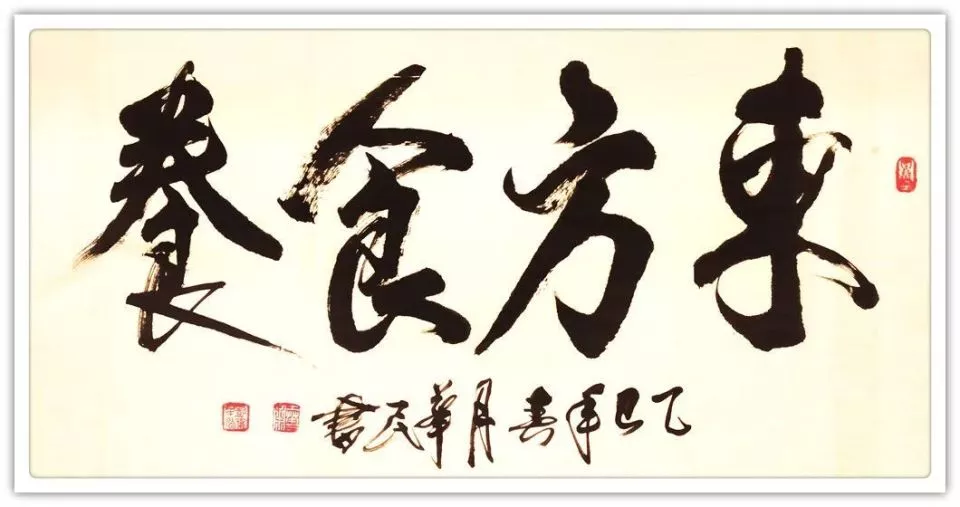 東方食養
乙巳年春月華民書